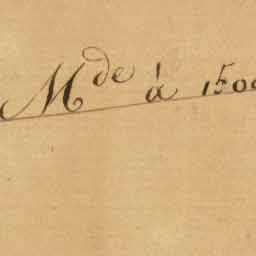 Mde à 1500